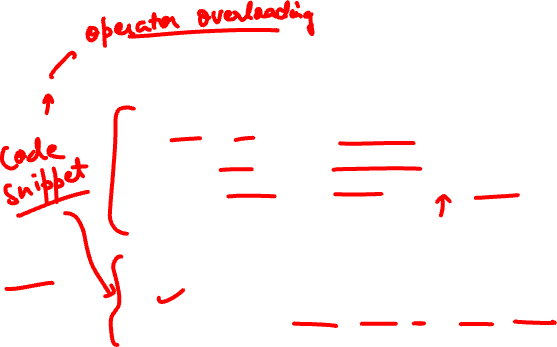 operator overloading
Code
snippet